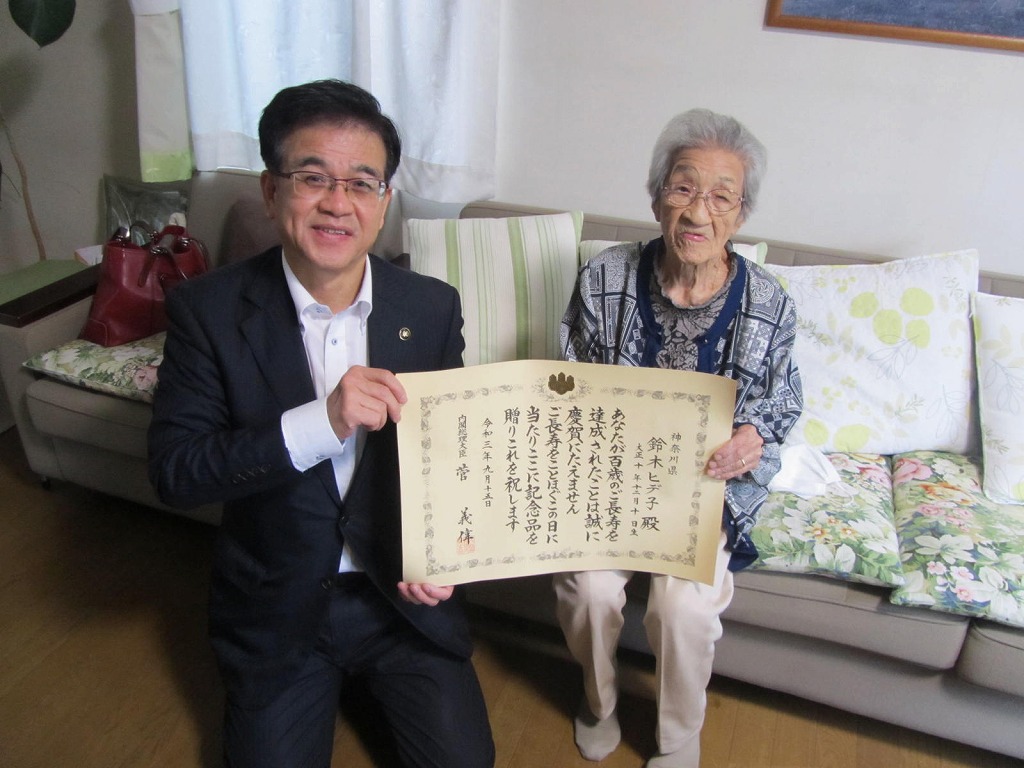 神奈川県
鈴木ヒデ子 殿
大正十年十二月十日生
あなたが百歳のご長寿を
達成されたことは誠に
慶賀にたえません
ご長寿をことほぐこの日に
当たりここに記念品を
贈りこれを祝します
令和三年九月十五日
内閣総理大臣 菅 義偉